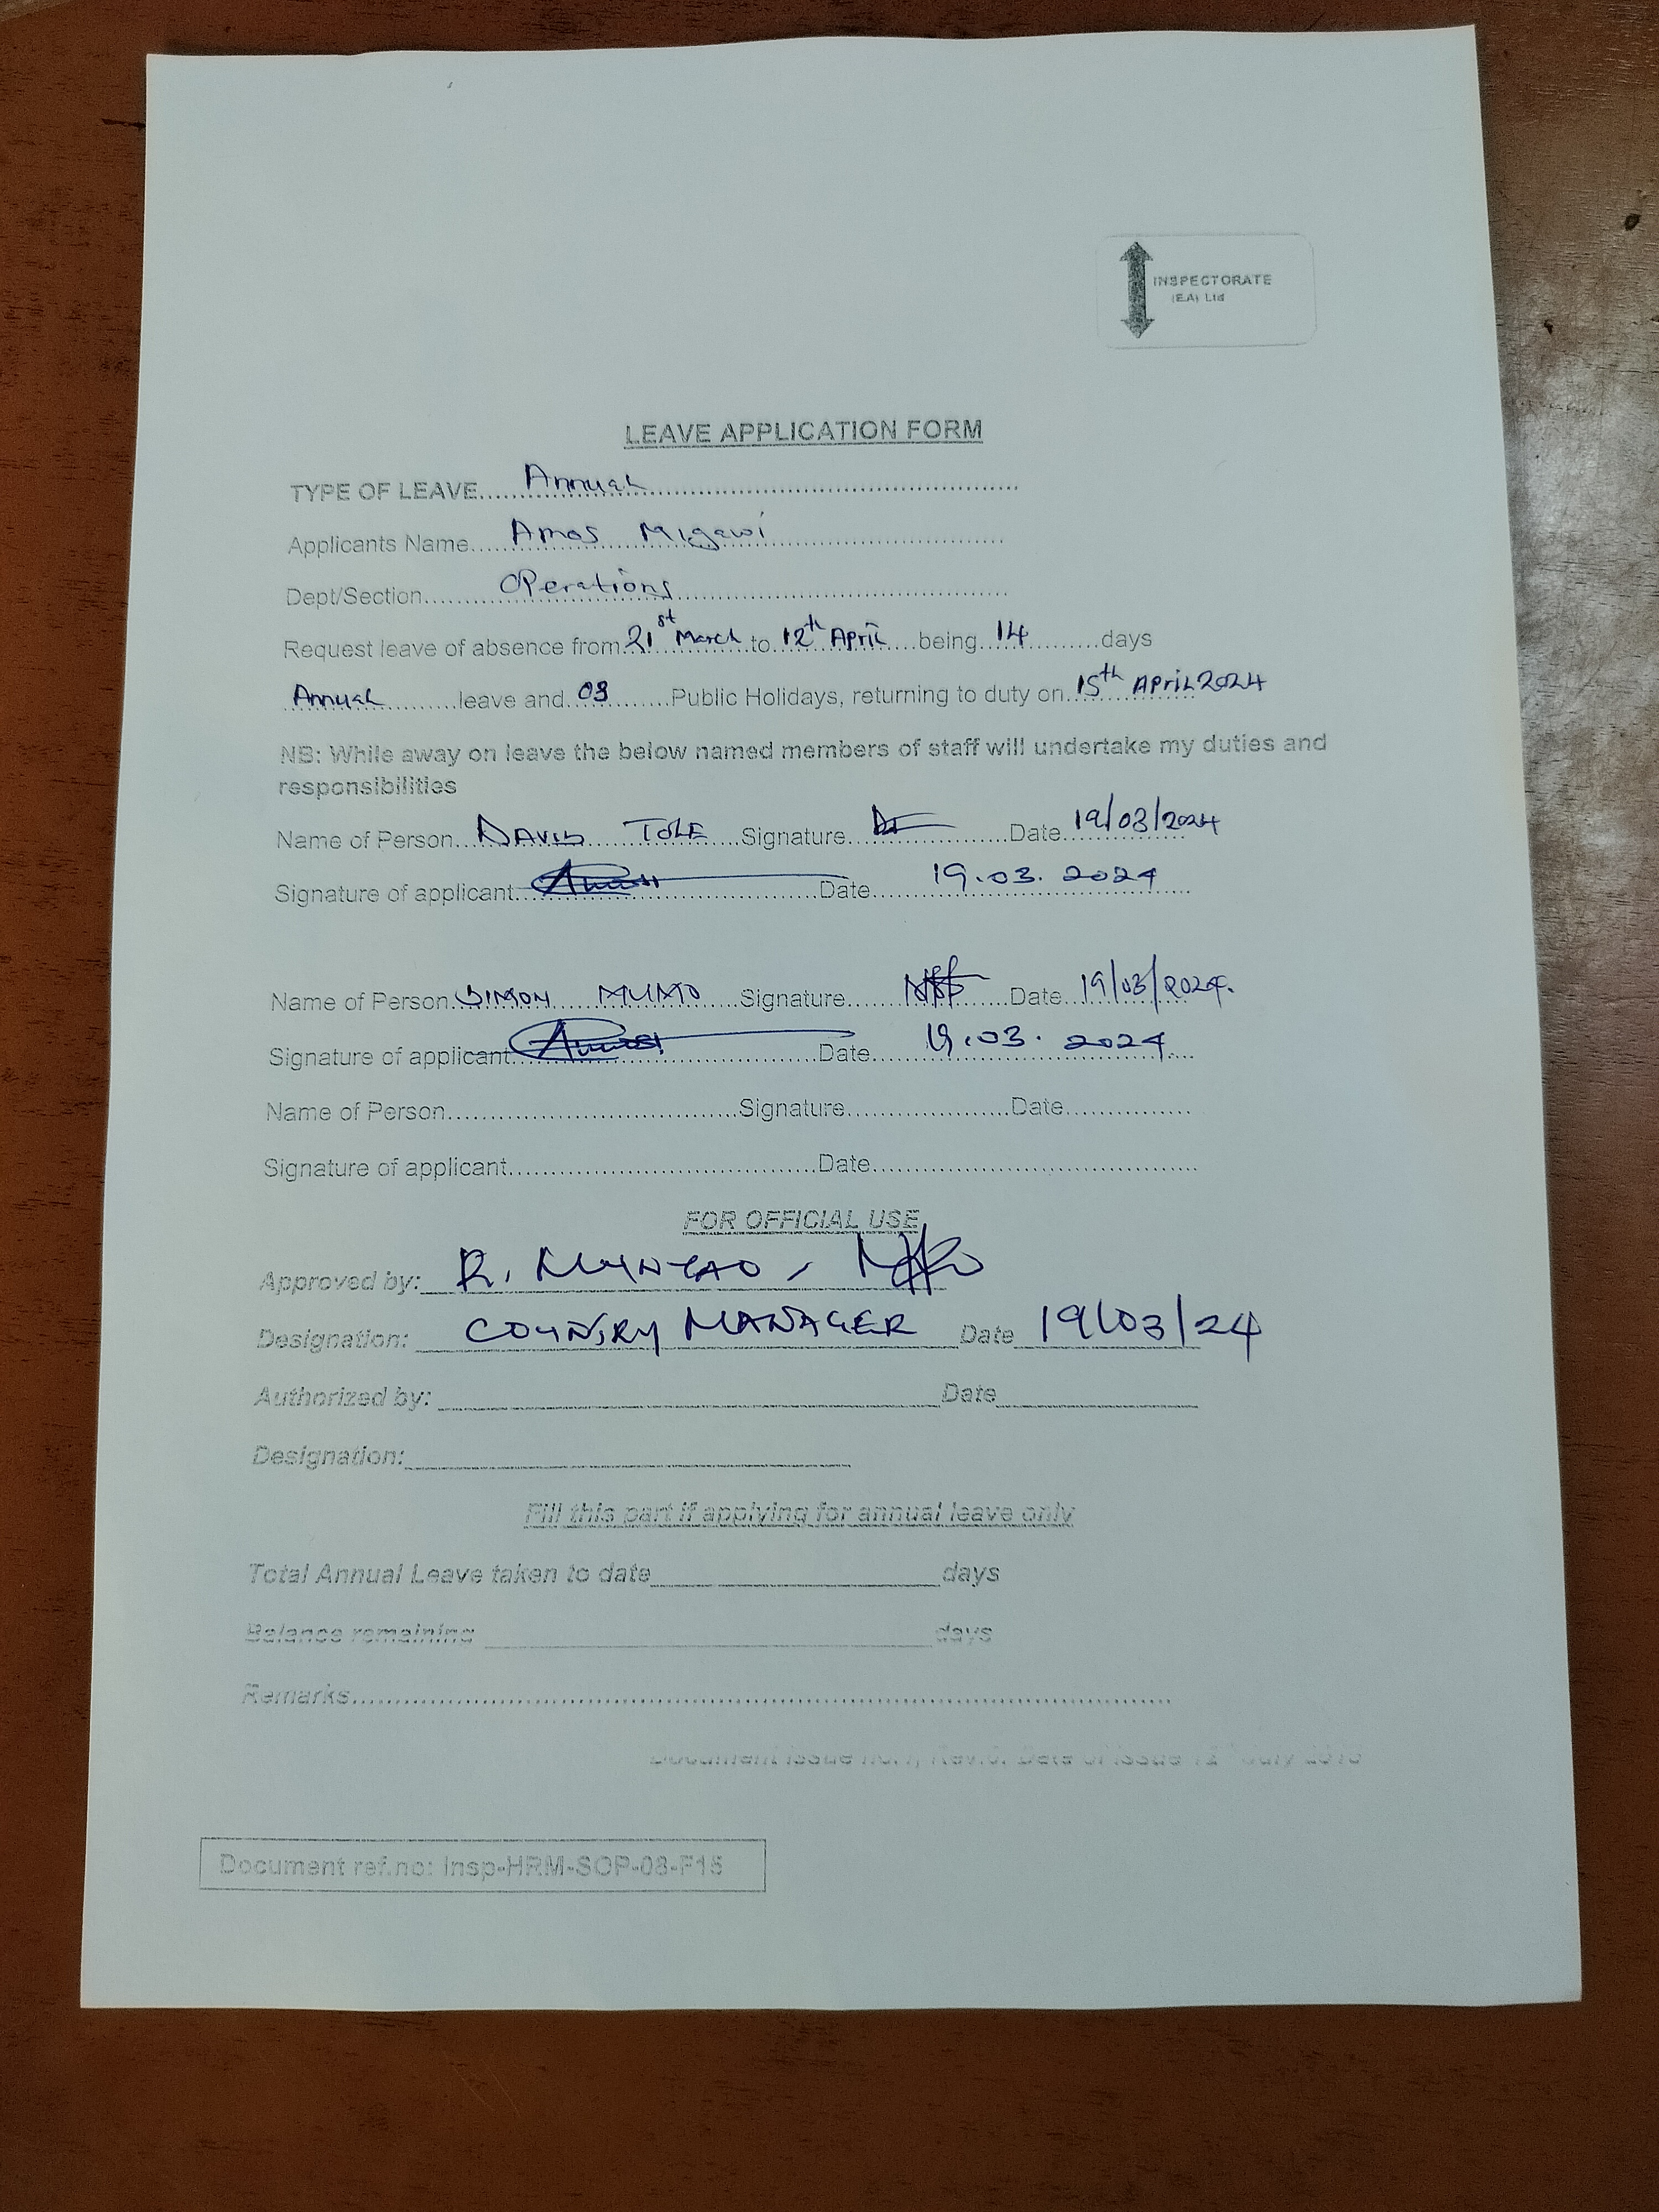 INSPECTORATE
(EA) Ltd
LEAVE APPLICATION FORM
TYPE OF LEAVE.....Annual..........
Applicants Name.....Amos Migawi..........
Dept/Section.....Operations..........
Request leave of absence from 21st March to 12th April being 14 days
Annual leave and 03 Public Holidays, returning to duty on 15th April 2024
NB: While away on leave the below named members of staff will undertake my duties and
responsibilities
Name of Person DAVID TOLE Signature Date 19/03/2024
Signature of applicant Date 19.03.2024
Name of Person SIMON MUMO Signature Date 19/03/2024.
Signature of applicant Date 19.03.2024
Name of Person..........Signature..........Date..........
Signature of applicant..........Date..........
FOR OFFICIAL USE
Approved by: R. MUNYAO,
Designation: COUNTRY MANAGER Date 19/03/24
Authorized by: Date
Designation:
Fill this part if applying for annual leave only
Total Annual Leave taken to date days
Balance remaining days
Remarks..........
Document issue no. Rev. Date of issue July
Document ref.no: Insp-HRM-SOP-08-F15